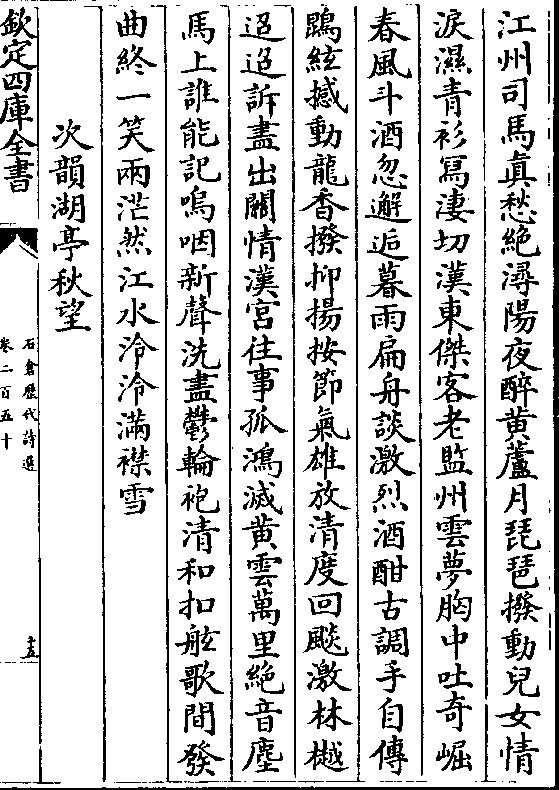 江州司馬真愁絶潯陽夜醉黄蘆月琵琶撥動兒女情
淚濕青衫寫淒切漢東傑客老監州雲夢胸中吐竒崛
春風斗酒忽邂逅暮雨扁舟談激烈酒酣古調手自傳
鵾絃撼動龍香撥抑揚按節氣雄放清度回颷激林樾
迢迢訴盡出關情漢宫往事孤鴻滅黄雲萬里絶音塵
馬上誰能記嗚咽新聲洗盡鬱輪袍清和扣舷歌間發
曲終一笑兩茫然江水泠泠滿襟雪
次韻湖亭秋望
欽定四庫全書
石倉歴代詩選
卷二百五十
十五